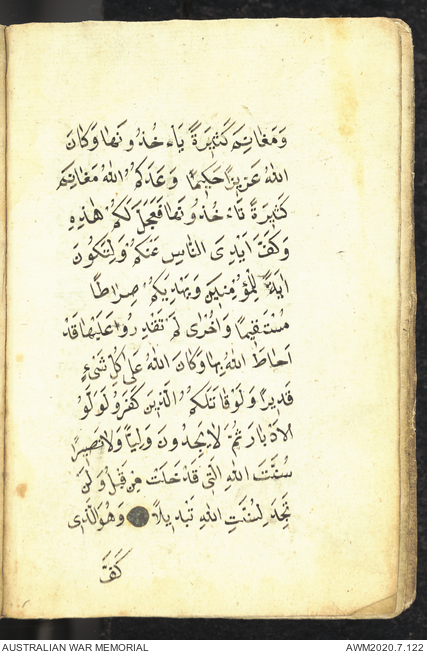 وَمَغَانِمَ كَثِيرَةً يَاءْخُذُونَهَا وَكَانَ
اللهُ عَزِيزًا حَكِيمًا وَعَدَكُمُ اللهُ مَغَانِمَ
كَثِيرَةً تَاءْخُذُونَهَا فَعَجَّلَ لَكُمْ هٰذِهِ
وَكَفَّ اَيْدِىَ النَّاسِ عَنْكُمْ وَلِتَكُونَ
ايَةً لِلْمُؤْمِنِينَ وَيَهْدِيَكُمْ صِرَاطًا
مُسْتَقِيمًا وَاُخْرٰى لَمْ تَقْدِرُوا عَلَيْهَا قَدْ
اَحَاطَ اللهُ بِهَا وَكَانَ اللهُ عَلٰى كُلِّ شَىْءٍ
قَدِيرًا وَلَوْ قَاتَلَكُمُ الَّذِينَ كَفَرُو لَوَلَّوُ
الْاَدْبَارَ ثُمَّ لَا يَجِدُونَ وَلِيًّا وَلَا نَصِيرًا
سُنَّتَ اللهِ الَّتِى قَدْ خَلَتْ مِنْ قَبْلُ وَلَنْ
تَجِدَ لِسُنَّتِ اللهِ تَبْدِيلًا وَهُوَ الَّذِى
كَفَّ
AUSTRALIAN WAR MEMORIAL AWM2020.7.122